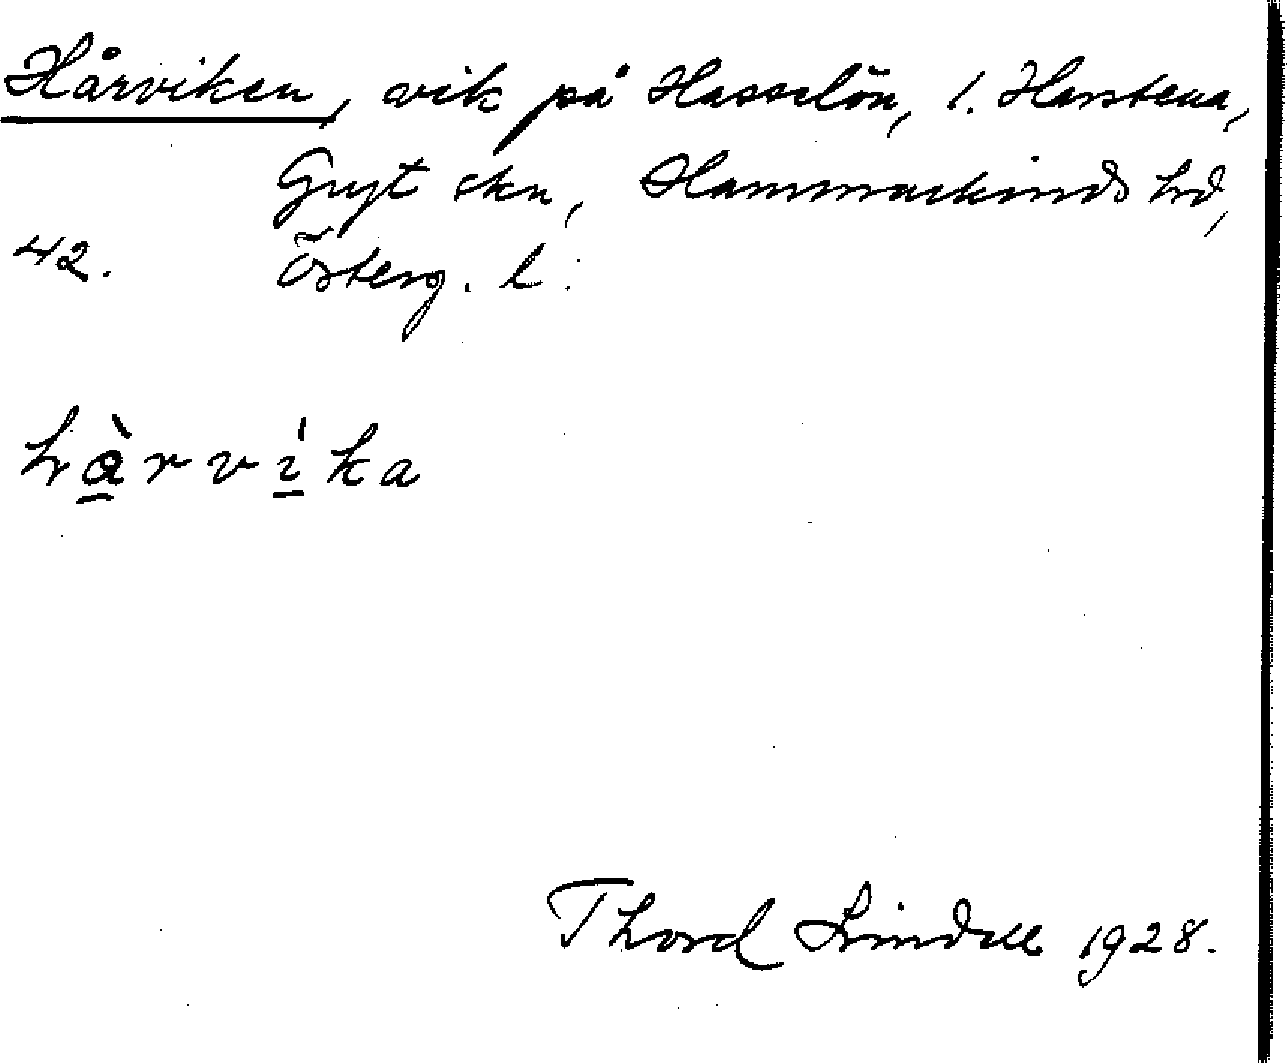 Hårviken, vik på Hasselön, l. Harstena,
Gryt skn, Hammarkinds hd,
42. Österg. l.
hàrvika
Thord Lindell 1928.